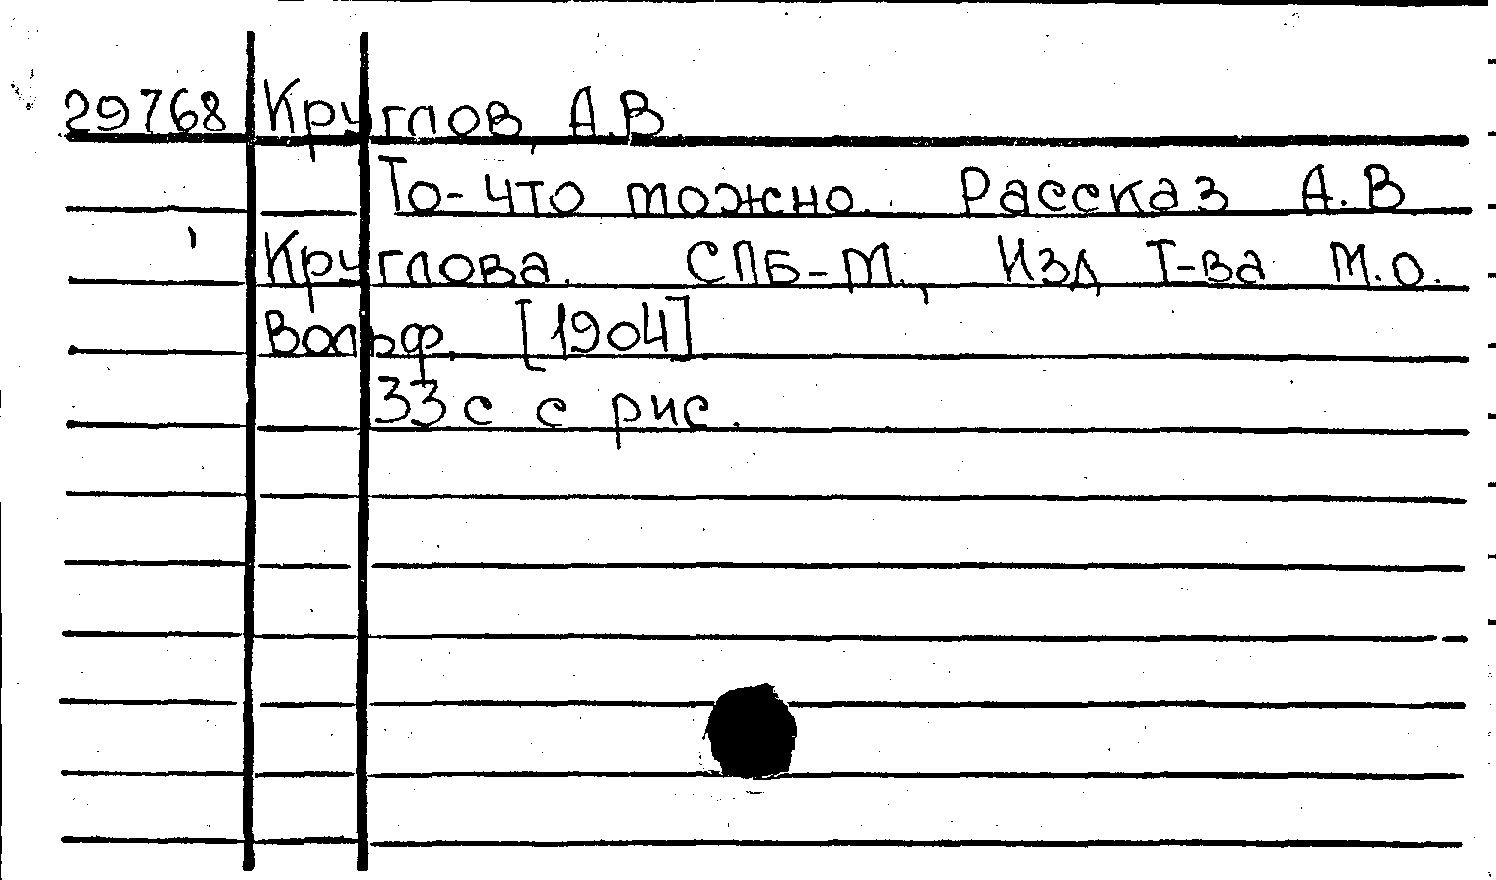 29768 Круглов, А.В
То-что можно. Рассказ А.В
Круглова. СПБ-М., Изд Т-ва М.О.
Вольф, [1904]
33с с рис.